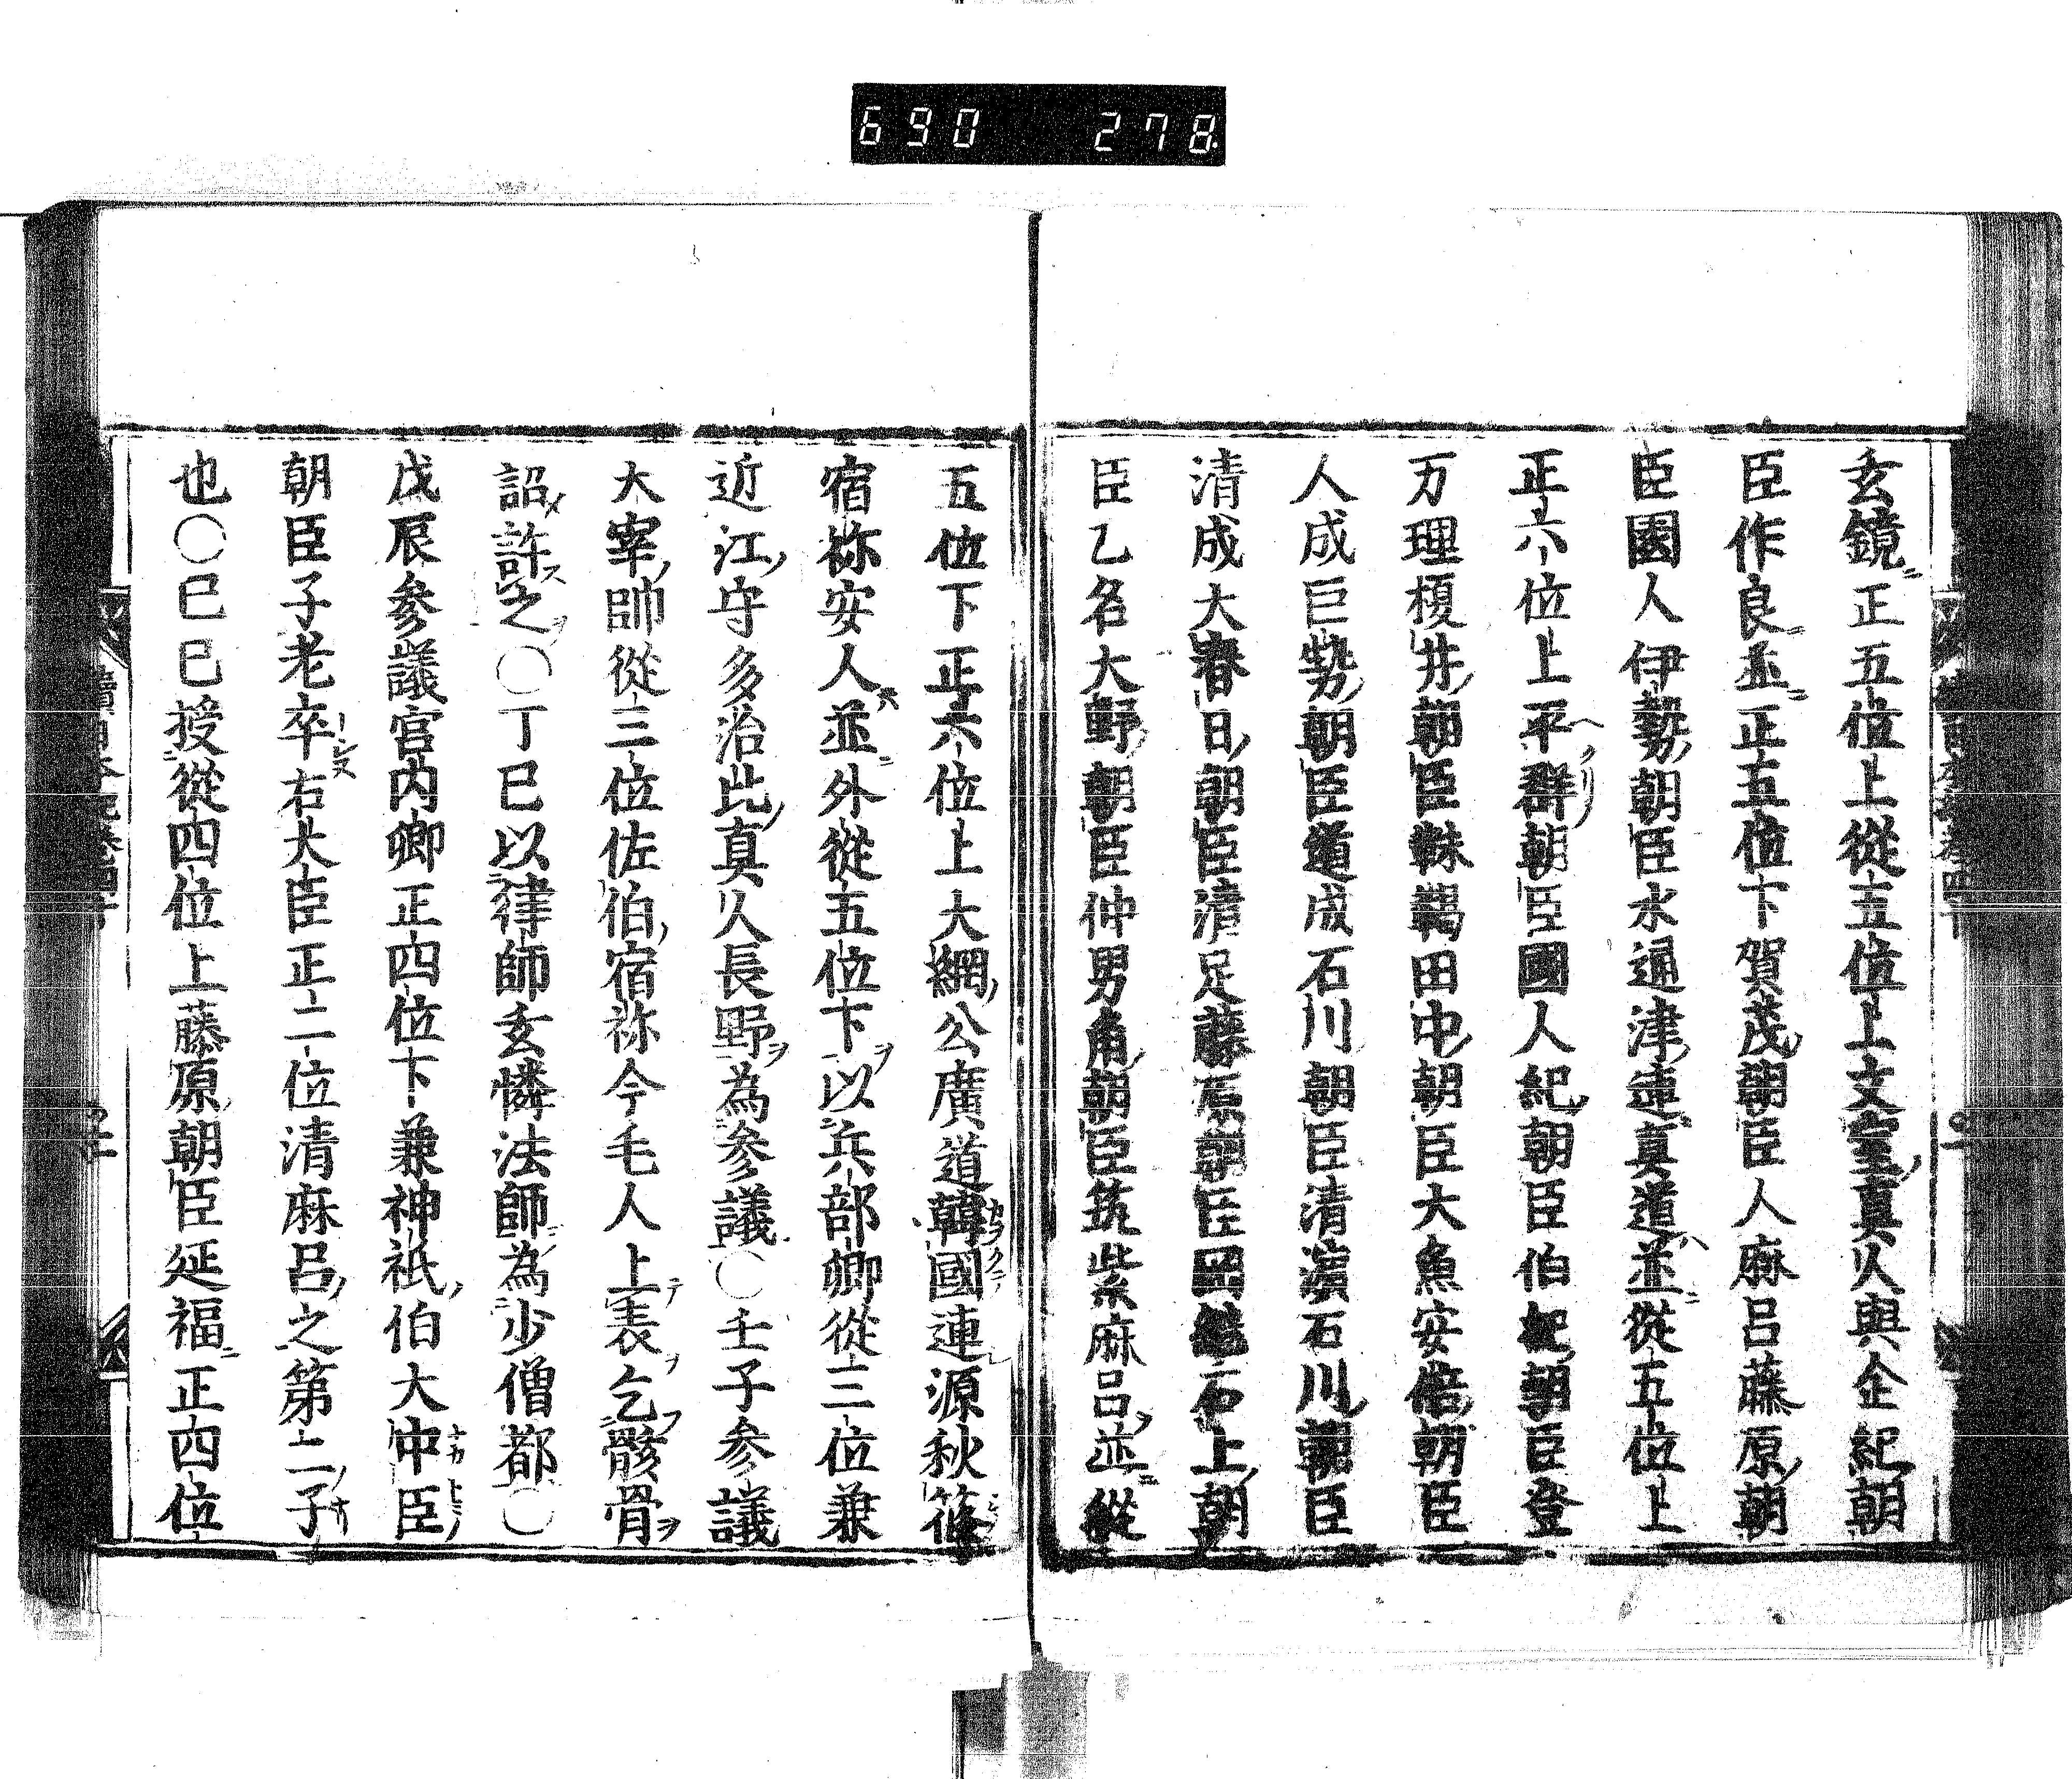 690 278
玄鏡正五位上從五位上文室真人與企紀朝
臣作良並正五位下賀茂朝臣人麻呂藤原朝
臣園人伊勢朝臣水通津連真道並從五位上
正六位上平群朝臣國人紀朝臣伯紀朝臣登
万理榎井朝臣靺鞨田中朝臣大魚安倍朝臣
人成巨勢朝臣道成石川朝臣清濱石川朝臣
清成大春日朝臣清足藤原朝臣岡繼石上朝
臣乙名大野朝臣仲男角朝臣筑紫麻呂並從
五位下正六位上大網公廣道韓國連源秋篠
宿祢安人並外從五位下以兵部卿從三位兼
近江守多治比真人長野為參議〇壬子參議
大宰帥從三位佐伯宿祢今毛人上表乞骸骨
詔許之〇丁巳以律師玄憐法師為少僧都〇
戊辰參議宮内卿正四位下兼神祇伯大中臣
朝臣子老卒右大臣正二位清麻呂之第二子
也〇巳巳授從四位上藤原朝臣延福正四位